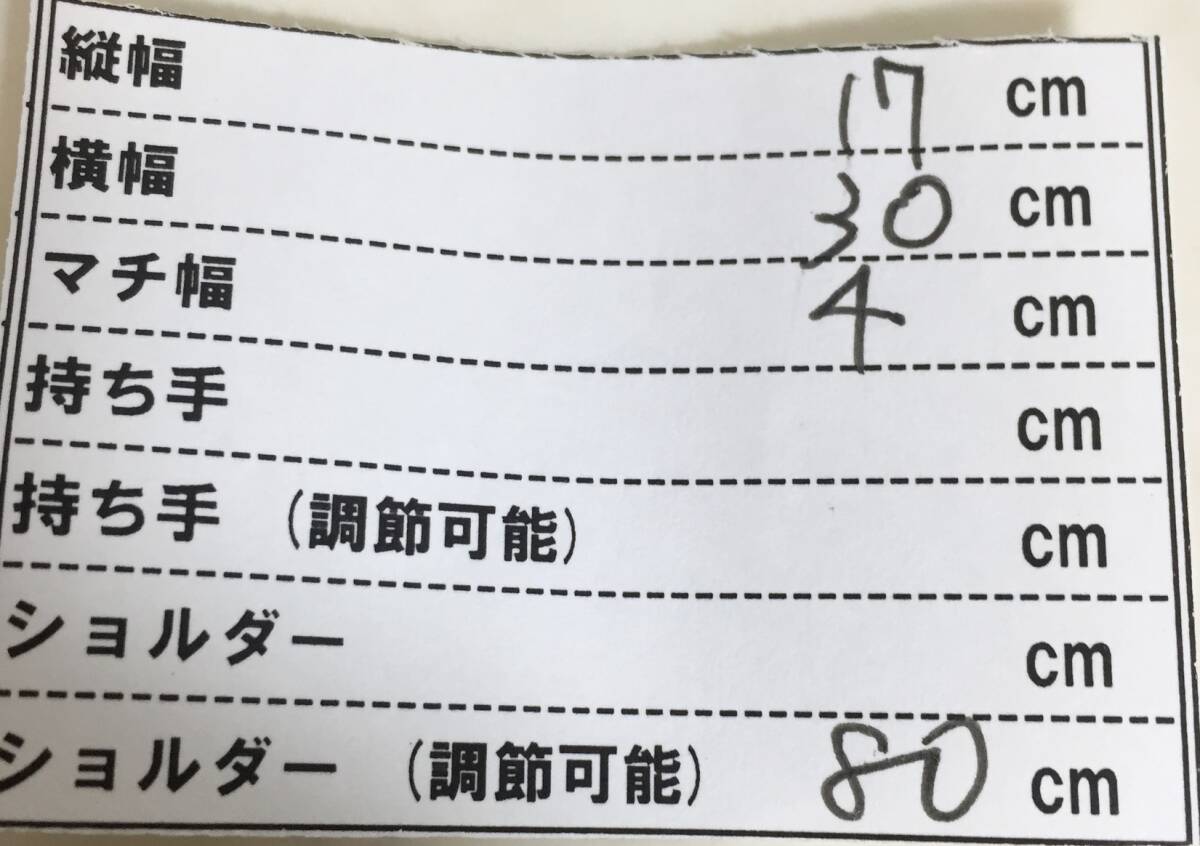 縦幅 17 cm
横幅 30 cm
マチ幅 4 cm
持ち手 cm
持ち手 (調節可能) cm
ショルダー cm
ショルダー (調節可能) 80 cm